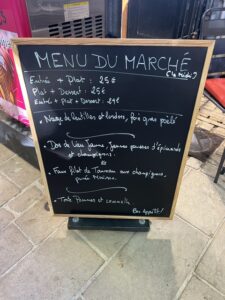 MENU DU MARCHÉ
(le midi)
Entrée + Plat : 25€
Plat + Dessert : 25€
Entrée + plat + Dessert : 29€
Nuage de lentilles et lardons, foie gras poêlé
• Dos de lieu jaune, jeunes pousses d'épinards
et champignons.
ou
• Faux filet de Taureau aux champignons,
purée Maison.
• Tarte Pommes et cannelle
Bon Appétit!